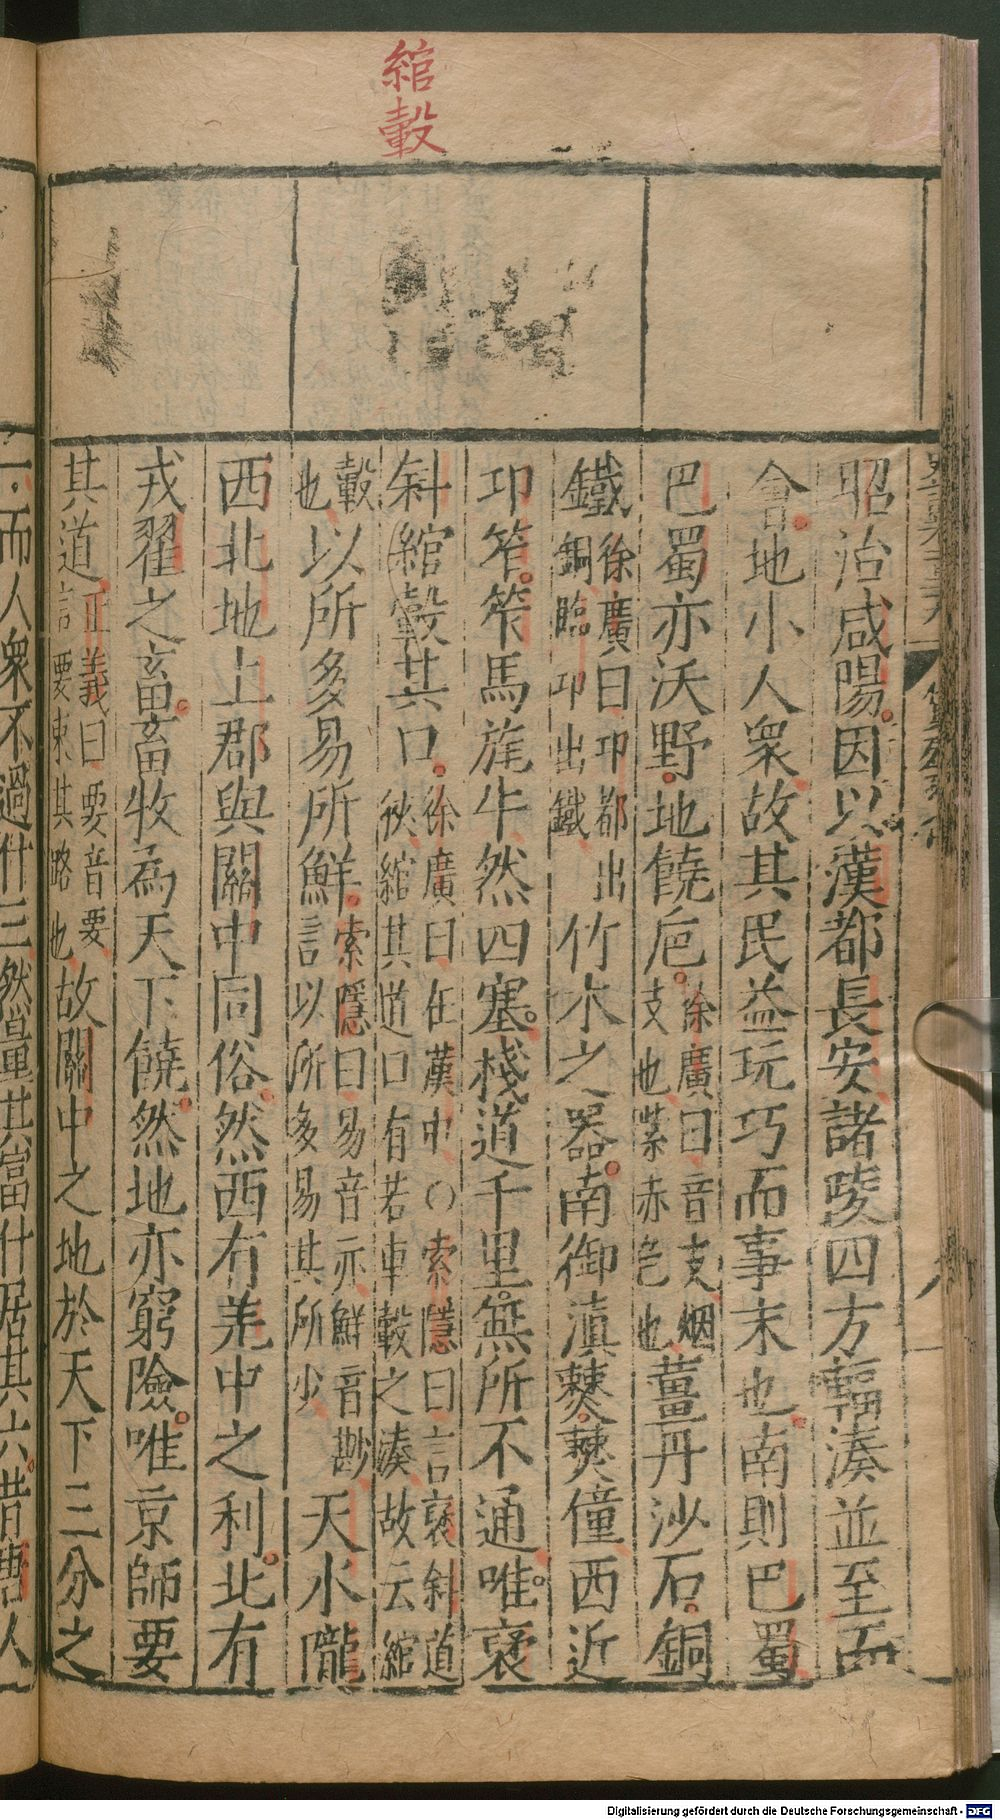 綰轂
昭治咸陽因以漢都長安諸陵四方輻湊並至而
會地小人衆故其民益玩巧而事末也南則巴蜀
巴蜀亦沃野地饒巵徐廣曰音支烟支也紫赤色也薑丹沙石銅
鐵徐廣曰邛都出銅臨邛出鐵竹木之器南御滇僰僰僮西近
邛笮笮馬旄牛然四塞棧道千里無所不通唯褒
斜綰轂其口徐廣曰在漢中○索隱曰言褒斜道狹綰其道口有若車轂之湊故云綰
轂也以所多易所鮮索隱曰易音亦鮮音尠言以所多易其所少天水隴
西北地上郡與關中同俗然西有羌中之利北有
戎翟之畜畜牧為天下饒然地亦窮險唯京師要
其道正義曰要音要言要束其路也故關中之地於天下三分之
一而人衆不過什三然量其富什居其六昔唐人
Digitalisierung gefördert durch die Deutsche Forschungsgemeinschaft - DFG